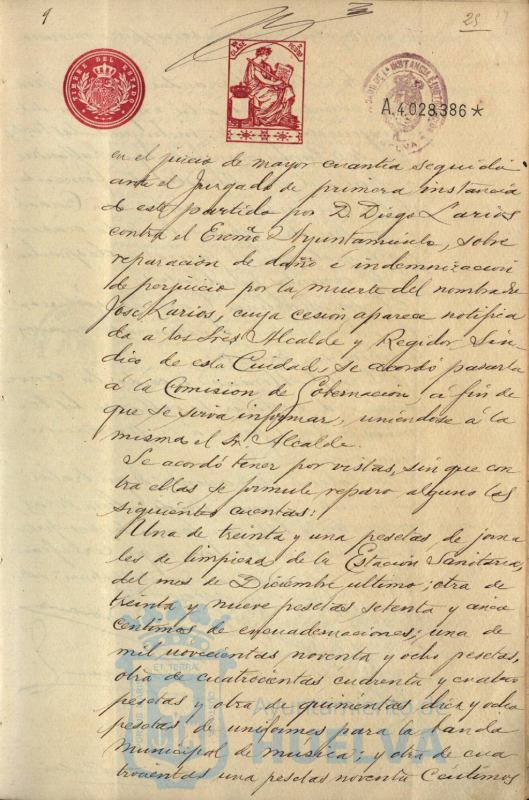 9
25
TIMBRE DEL ESTADO
CLASE
PESETAS
A.4.028.386*
en el juicio de mayor cuantia seguido
ante el Juzgado de primera instancia
de este partido por D. Diego Larios
contra el Excmo Ayuntamiento, sobre
reparacion de daño é indemnizacion
de perjuicio por la muerte del nombrado
José Larios, cuya cesión aparece notifica
da á los Sres Alcalde y Regidor Sín-
dico de esta Ciudad, se acordó pasarla
á la Comision de Gobernacion á fin de
que se sirva informar, uniéndose á la
misma el Sr. Alcalde.
Se acordó tener por vistas, sin que con
tra ellas se formule reparo alguno las
siguientes cuentas:
Una de treinta y una pesetas de jorna
les de limpieza de la Estación Sanitaria,
del mes de Diciembre ultimo; otra de
treinta y nueve pesetas setenta y cinco
centimos de encuadernaciones; una de
mil novecientas noventa y ocho pesetas,
otra de cuatrocientas cuarenta y cuatro
pesetas y otra de quinientas diez y ocho
pesetas de uniformes para la banda
municipal de musica; y otra de cua
trocientas una pesetas noventa centimos
Ayuntamiento de
HUELVA